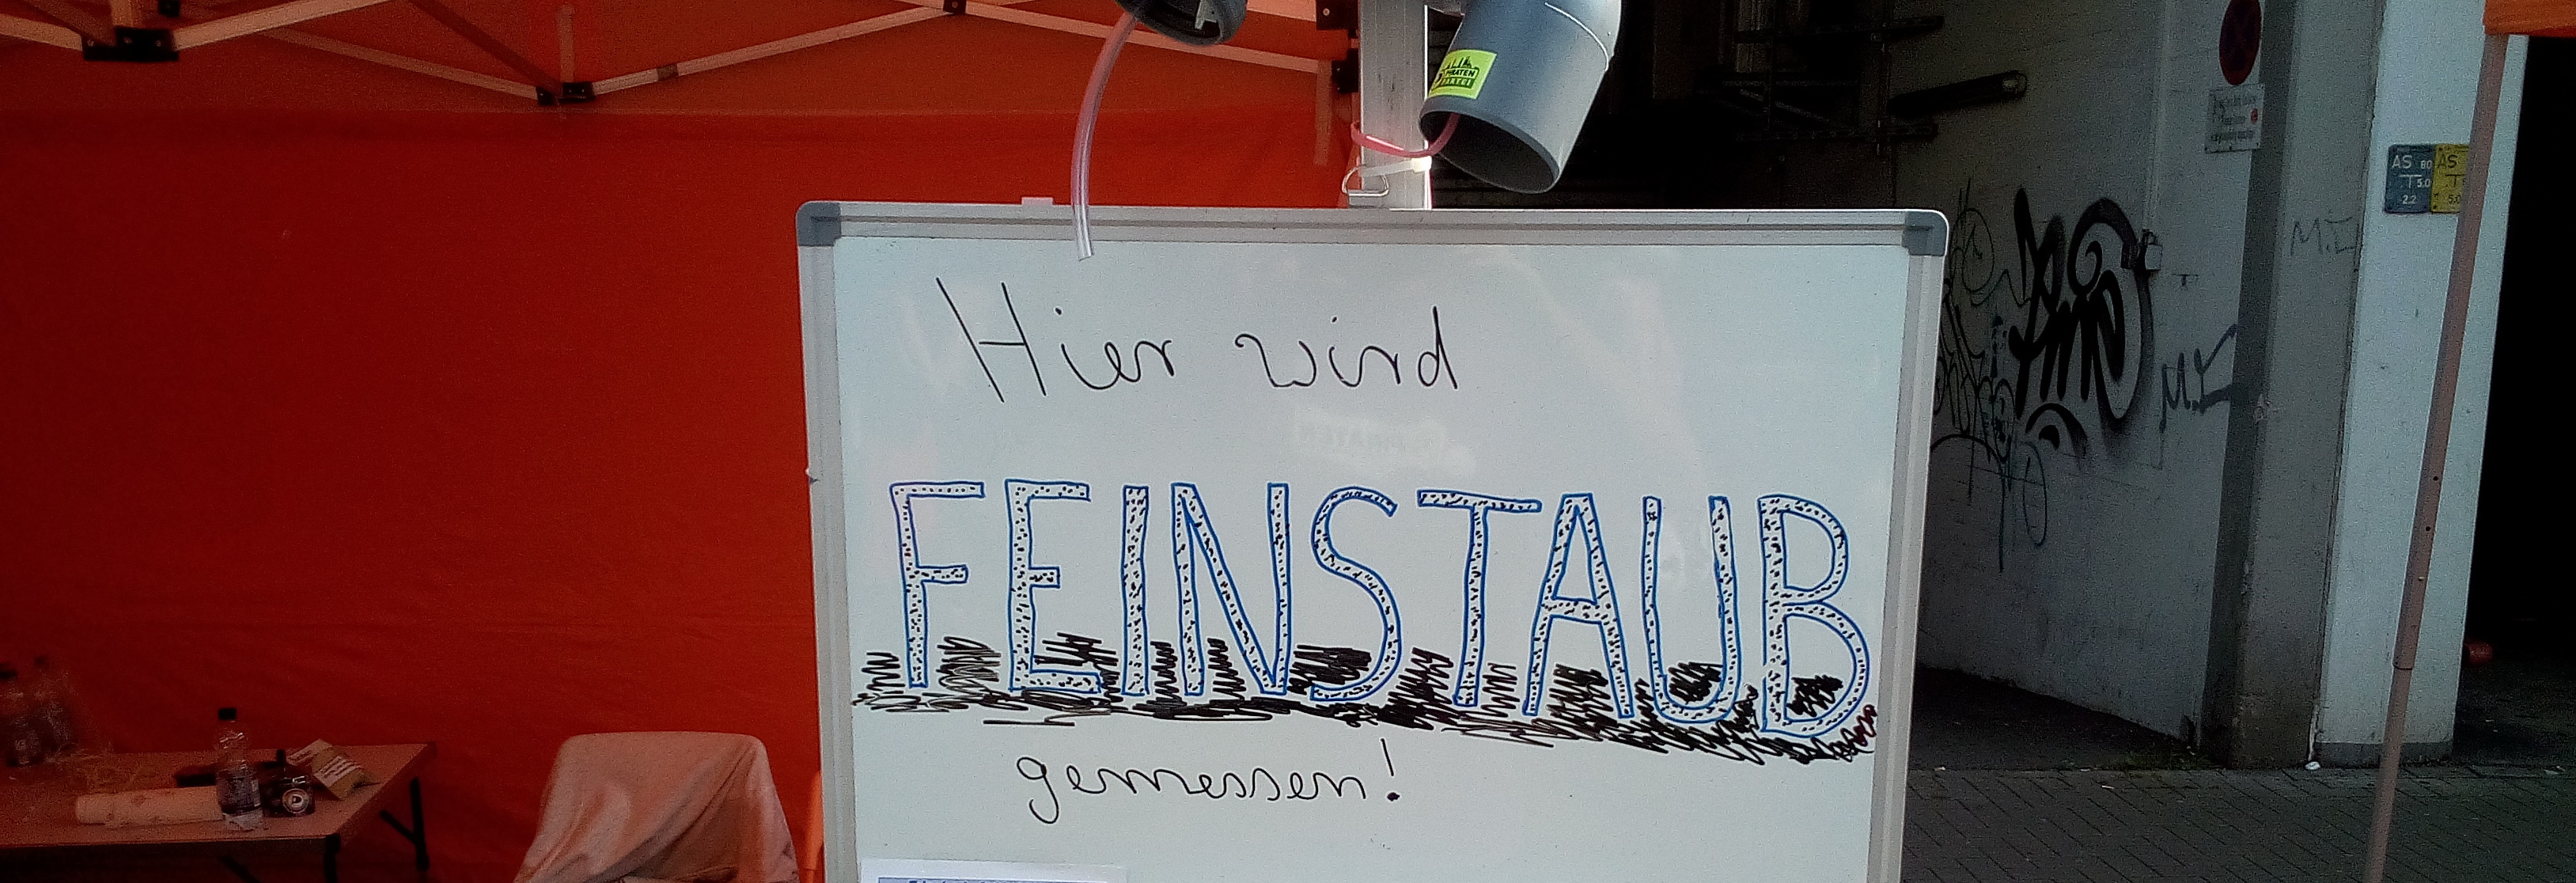 PIRATEN
PARTEI
AS 80
T 5.0
2.2
AS
T
5.0
Hier wird
FEINSTAUB
gemessen!
M.E